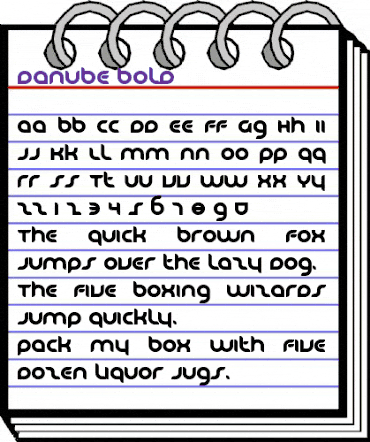 Danube Bold
Aa Bb Cc Dd Ee Ff Gg Hh Ii
Jj Kk Ll Mm Nn Oo Pp Qq
Rr Ss Tt Uu Vv Ww Xx Yy
Zz 1 2 3 4 5 6 7 8 9 0
The quick brown fox
jumps over the lazy dog.
The five boxing wizards
jump quickly.
Pack my box with five
dozen liquor jugs.